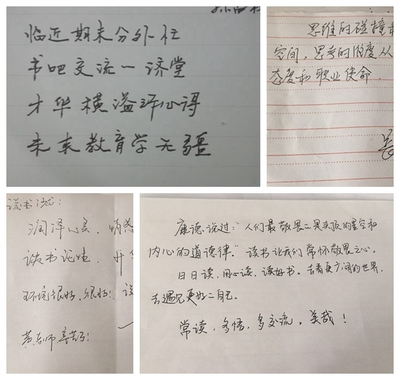 临近期末分外忙
书吧交流一济堂
才华横溢评心得
未来教育学无疆
思维的碰撞
空间,思考的维度从
态度和职业使命
读书沙龙:
润泽心灵,
读书论坛,
环境很好,很好!
黄老师辛苦了!
康德说过:"人们最敬畏二是头顶的星空和
内心的道德律。"读书让我们常怀敬畏之心。
日日读,用心读,读好书。去看更广阔的世界,
去遇见更好二自己。
常读,多悟,多交流,美哉!